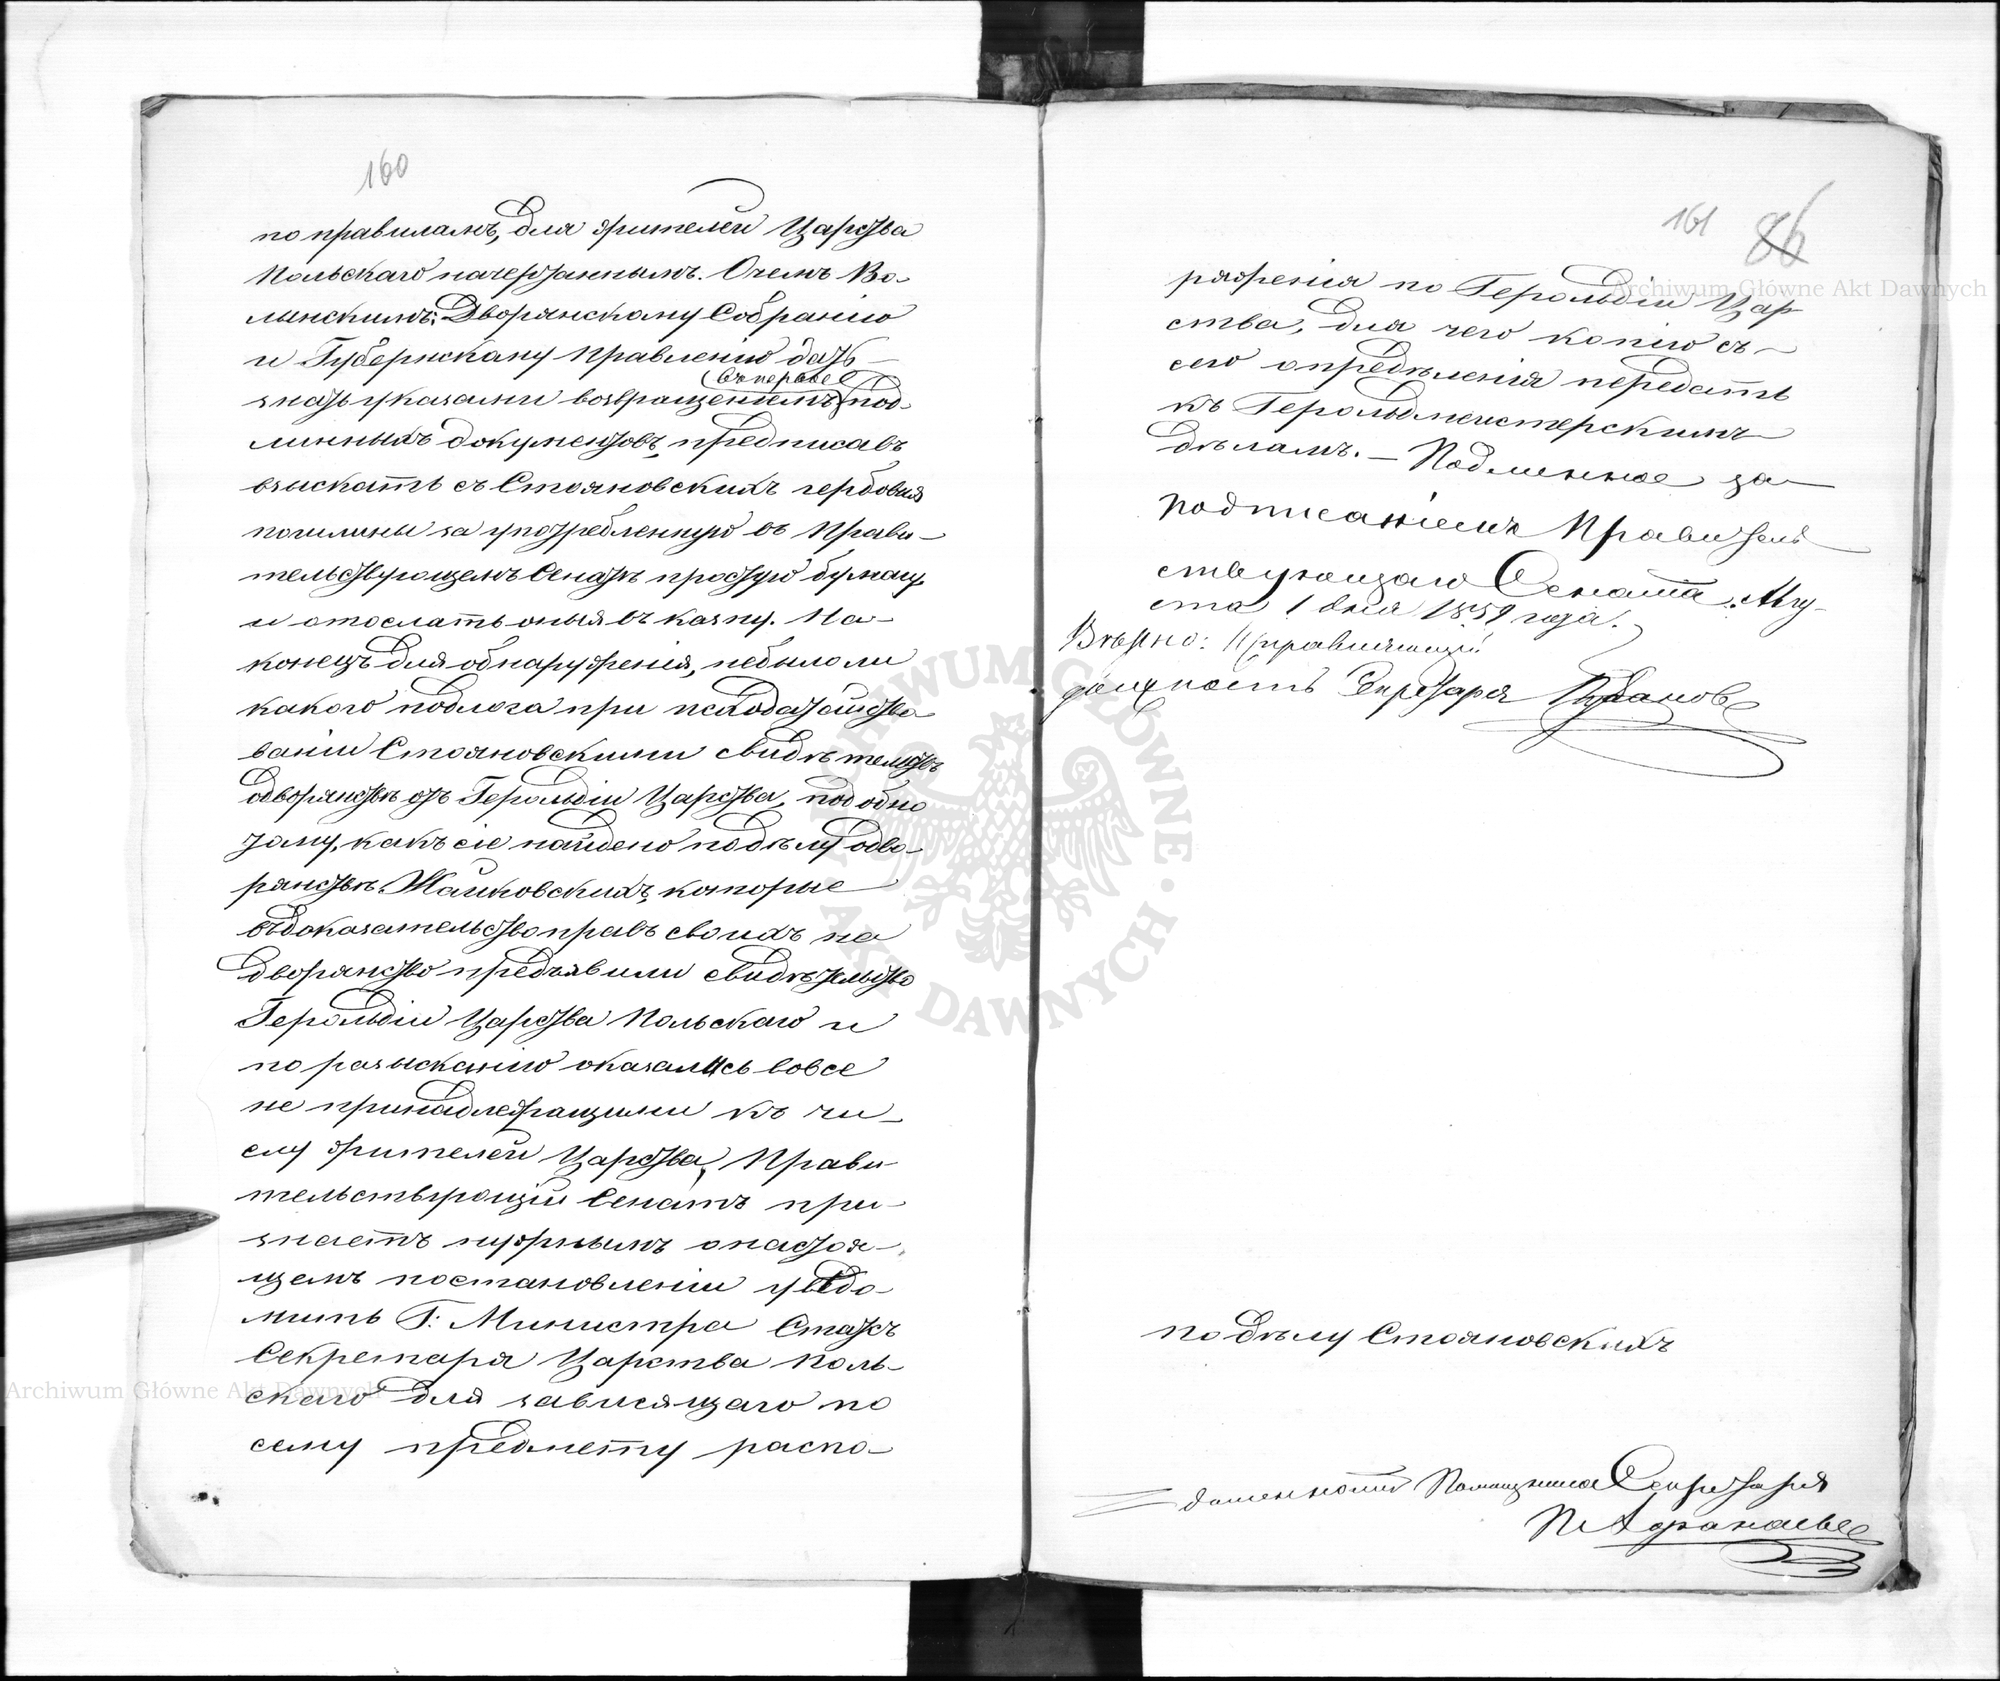 160
по правиламъ, для жителей Царства
Польскаго начертаннымъ. О чемъ Во-
лынскимъ: Дворянскому Собранію
и Губернскому Правленію дать
знать указами съ возвращеніемъ въ первое под-
линныхъ документовъ, предписавъ
взыскать съ Стояновскихъ гербовыя
пошлины за употребленную въ Прави-
тельствующемъ Сенатѣ простую бумагу
и отослать оныя въ казну. На-
конецъ для обнаруженія, небыло ли
какого подлога при исходатайство
ваніи Стояновскими свидѣтельствъ
о дворянствѣ отъ Герольдіи Царства, подобно
тому, какъ сіе найдено по дѣлу о дво-
рянствѣ которые
въ доказательство правъ своихъ на
дворянство предъявили свидѣтельство
Герольдіи Царства Польскаго и
по разысканію оказались вовсе
не принадлежащими къ чи-
слу жителей Царства, Прави-
тельствующій Сенатъ при-
знаетъ нужнымъ о настоя-
щемъ постановленіи увѣдо-
мить Г. Министра Статсъ
Секретаря Царства Поль-
скаго для зависящаго по
сему предмету распо-
161 86
ряженія по Герольдіи Цар-
ства, для чего копію съ
сего опредѣленія передать
къ Герольдмейстерскимъ
дѣламъ. — Подлинное за
подписаніемъ Правитель
ствующаго Сената. Авгу-
ста 1 дня 1859 года.
Вѣрно: Исправляющій
должность Секретаря
по дѣлу Стояновскихъ
должность Помощника Секретаря
Афанасьев
Archiwum Główne Akt Dawnych
Archiwum Główne Akt Dawnych
ARCHIWUM GŁÓWNE AKT DAWNYCH